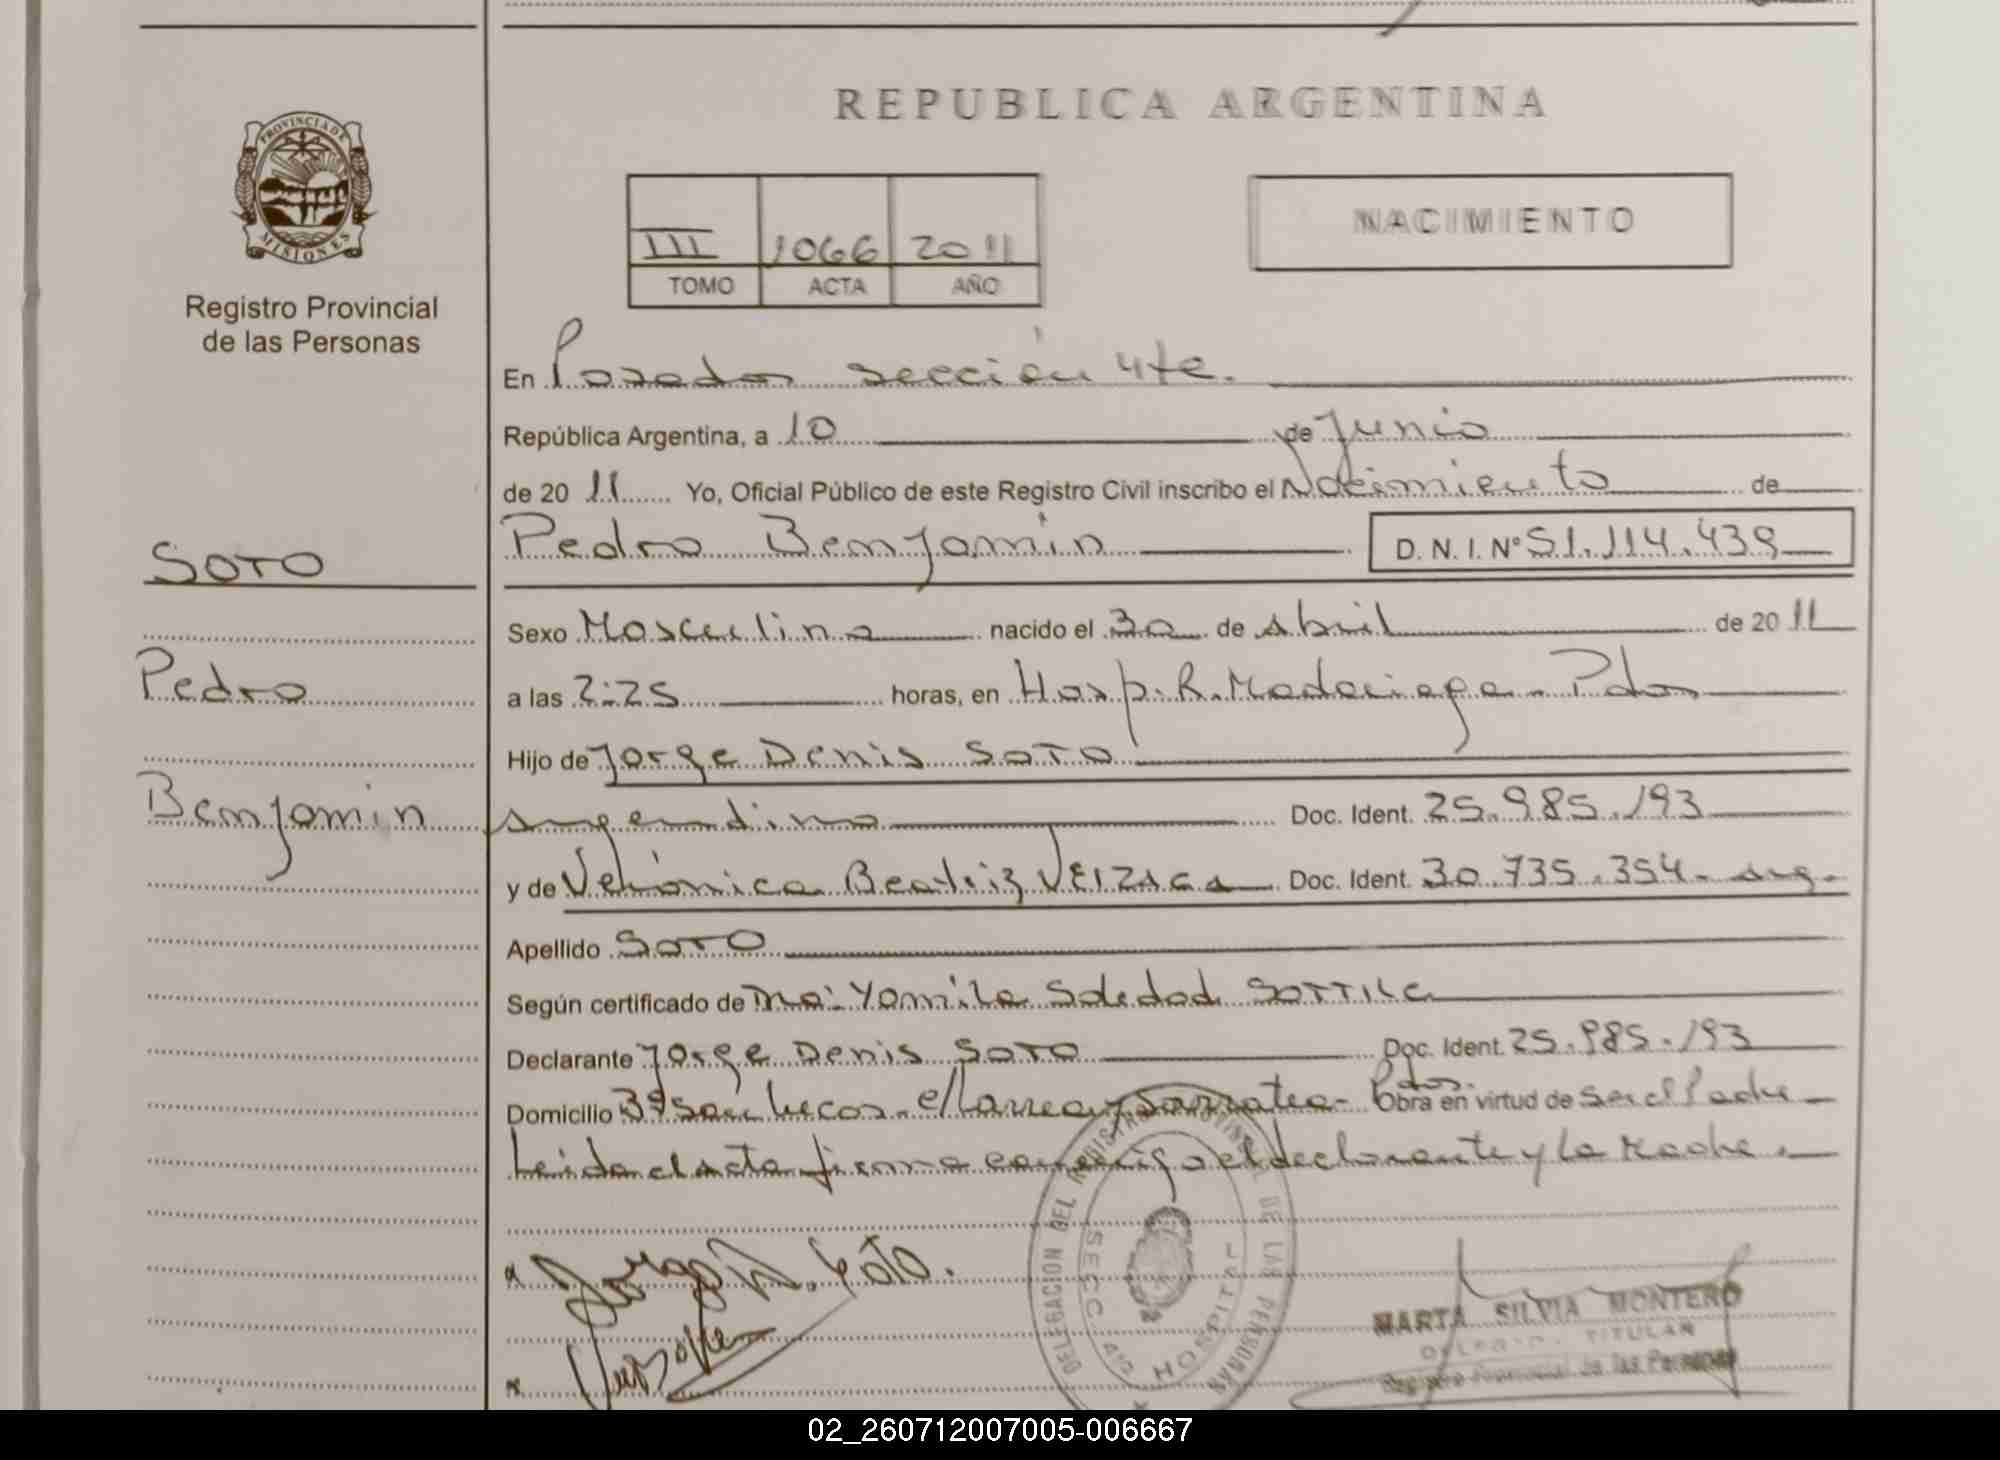 PROVINCIA DE
MISIONES
Registro Provincial
de las Personas
REPUBLICA ARGENTINA
III 1066 2011
TOMO ACTA AÑO
NACIMIENTO
En Posadas sección 4ta.
República Argentina, a 10 de Junio
de 20 11 Yo, Oficial Público de este Registro Civil inscribo el Nacimiento de
Pedro Benjamin D.N.I. Nº 51.114.439
SOTO
Sexo Masculino nacido el 30 de Abril de 20 11
Pedro
a las 2:25 horas, en Hosp. R. Madariaga - Pdas
Hijo de Jorge Denis SOTO
Benjamin
argentino Doc. Ident. 25.985.193
y de Verónica Beatriz Doc. Ident. 30.735.354 - arg.
Apellido SOTO
Según certificado de Yamila Soledad
Declarante Jorge Denis SOTO Doc. Ident. 25.985.193
Domicilio Pdas. Obra en virtud de ser el Padre
Leida el acta firma conmigo el declarante y la Madre.
Jorge D. Soto.
DELEGACION DEL REGISTRO PROVINCIAL DE LAS PERSONAS
SECC. 4ta HOSPITAL
MARTA SILVIA MONTERO
TITULAR
Registro Provincial de las Personas
02_260712007005-006667